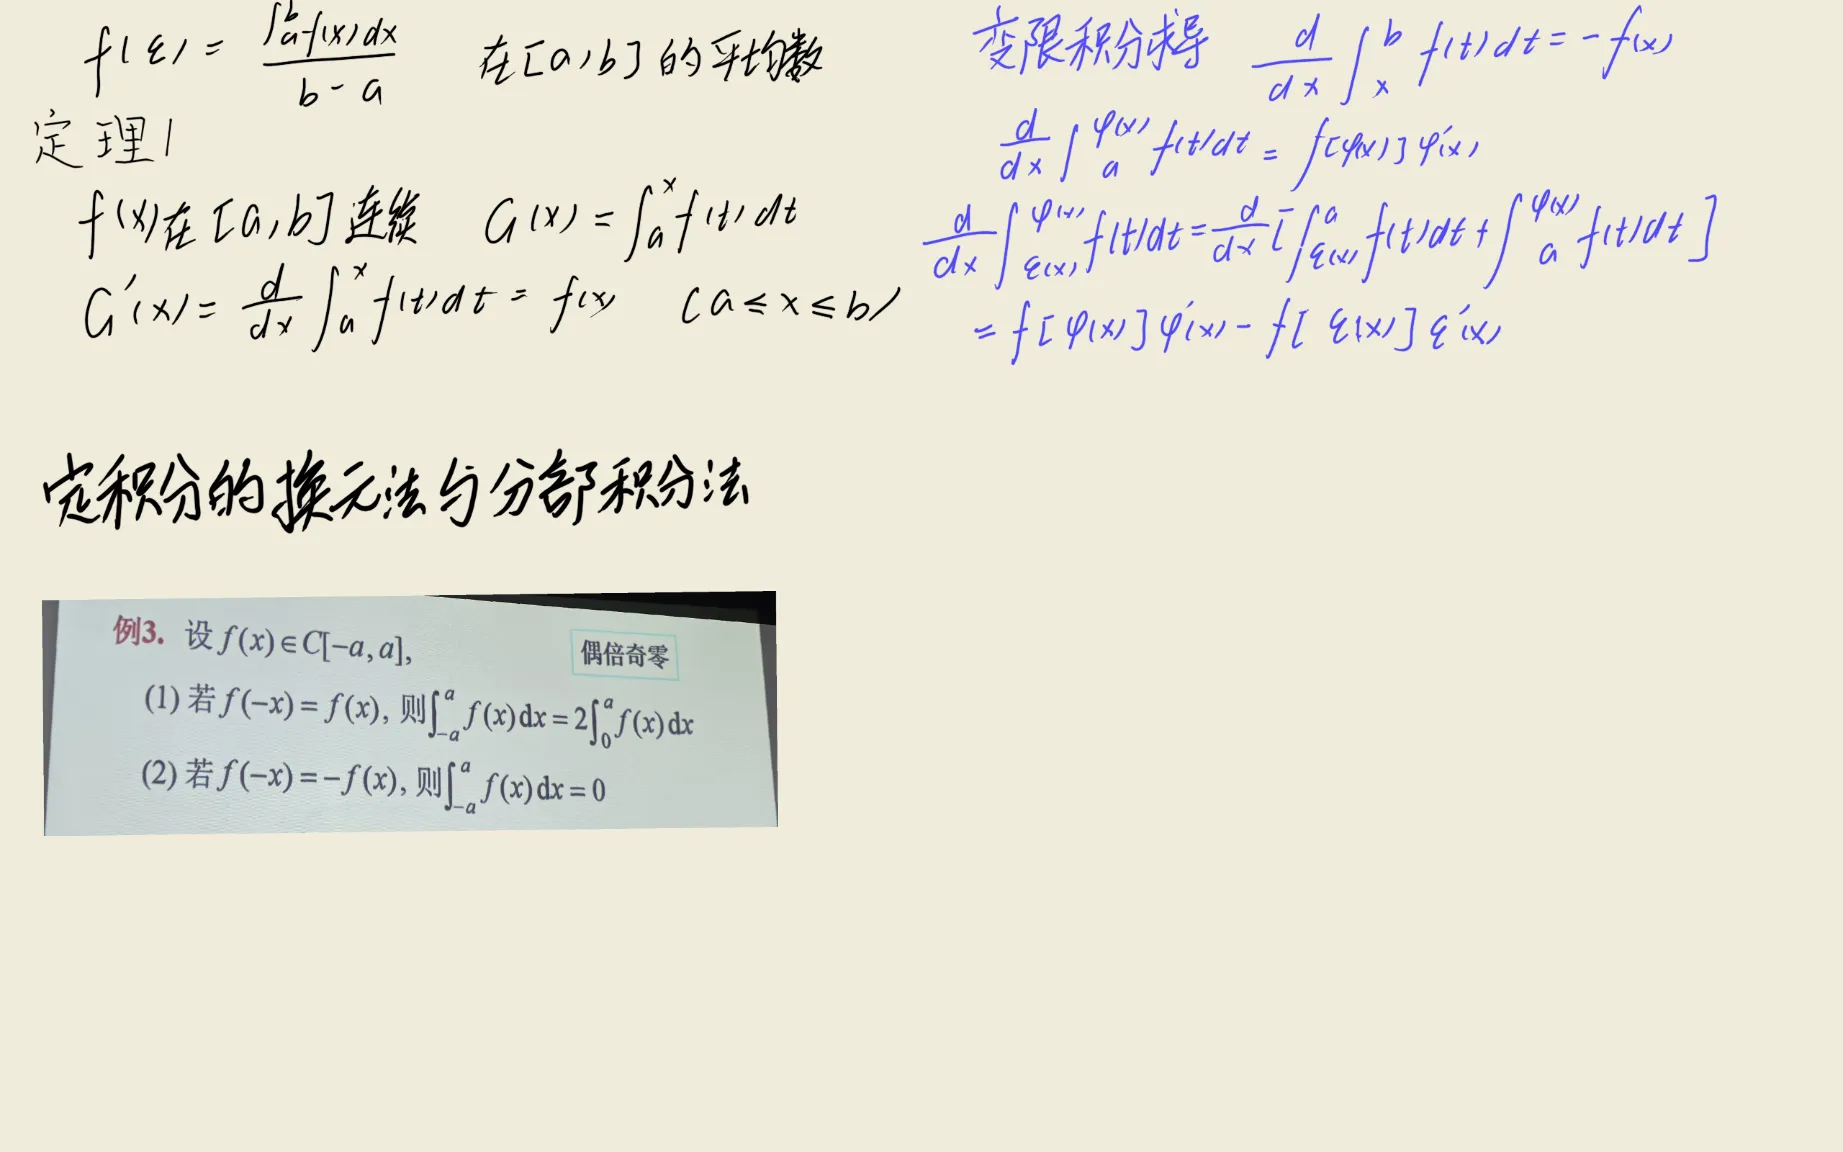 f(ξ) = ∫_a^b f(x)dx / (b - a) 在[a,b]的平均数
定理1
f(x)在[a,b]连续 G(x) = ∫_a^x f(t)dt
G'(x) = d/dx ∫_a^x f(t)dt = f(x) (a ≤ x ≤ b)
变限积分求导 d/dx ∫_x^b f(t)dt = -f(x)
d/dx ∫_a^φ(x) f(t)dt = f[φ(x)]φ'(x)
d/dx ∫_ξ(x)^φ(x) f(t)dt = d/dx [∫_ξ(x)^a f(t)dt + ∫_a^φ(x) f(t)dt]
= f[φ(x)]φ'(x) - f[ξ(x)]ξ'(x)
定积分的换元法与分部积分法
例3. 设 f(x)∈C[-a,a], 偶倍奇零
(1) 若 f(-x) = f(x), 则∫_{-a}^a f(x)dx = 2∫_0^a f(x)dx
(2) 若 f(-x) = -f(x), 则∫_{-a}^a f(x)dx = 0